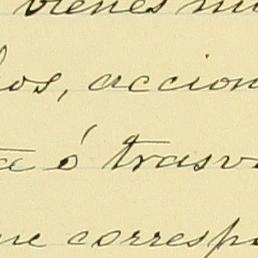 vienes mu
os, accion
a ó trasv
ue corresp